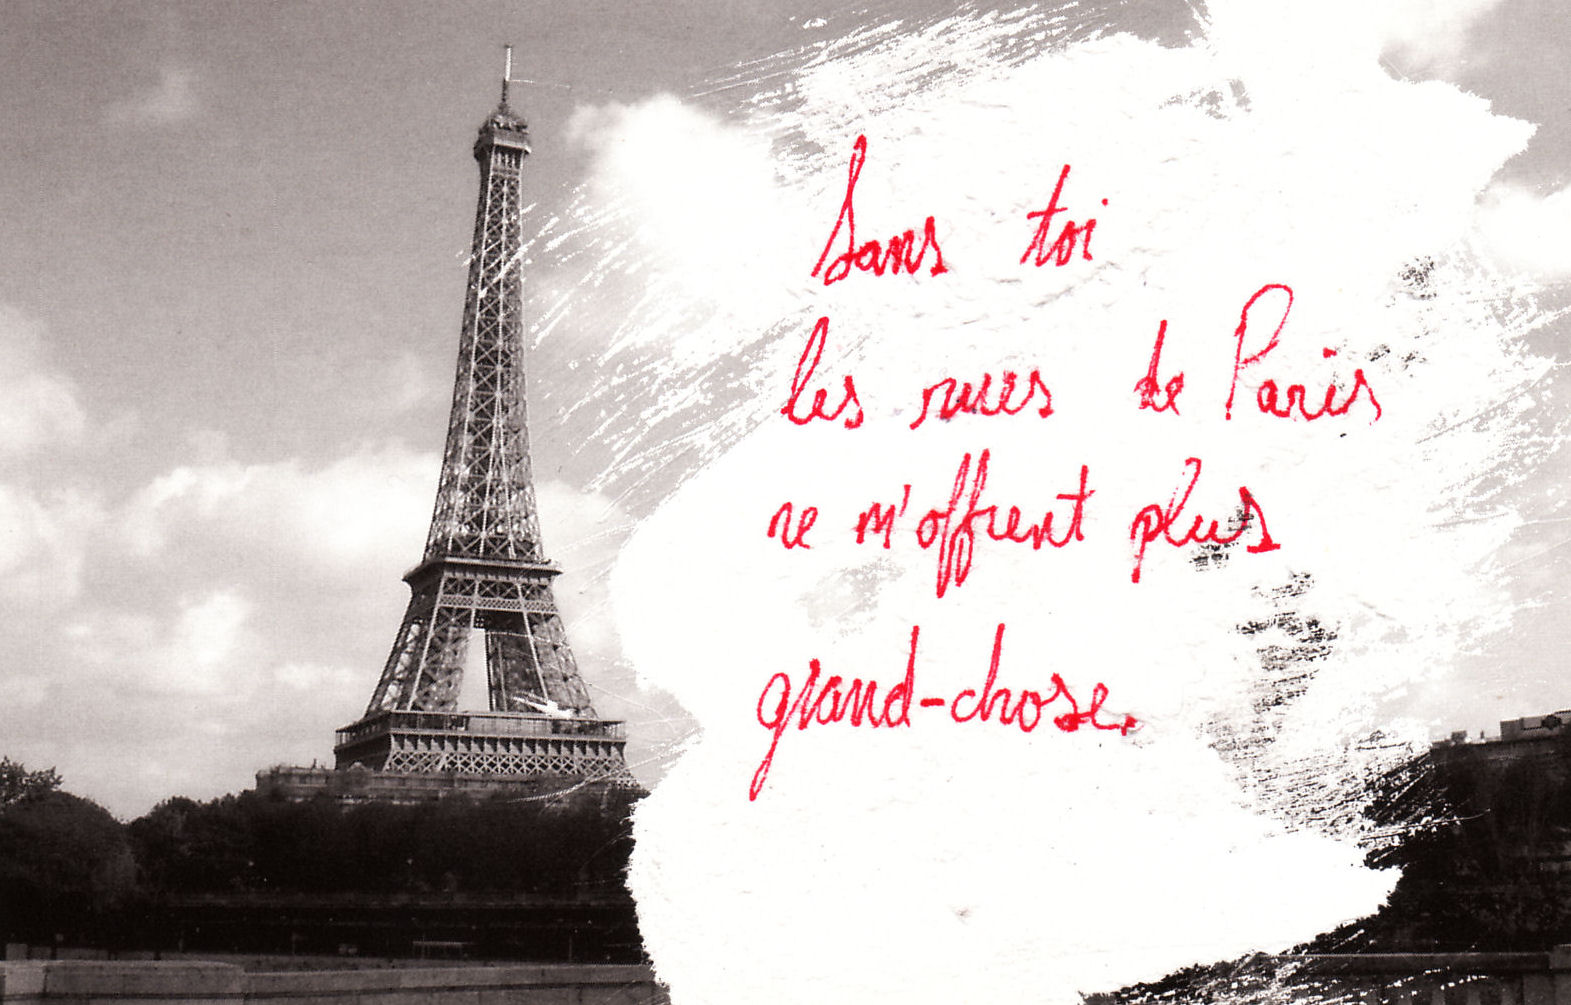 Sans toi
les rues de Paris
ne m'offrent plus
grand-chose.